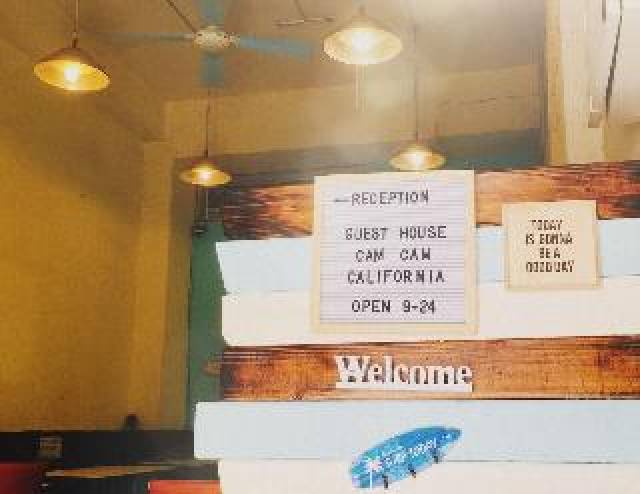 ←RECEPTION
GUEST HOUSE
CAM CAM
CALIFORNIA
OPEN 9-24
TODAY
IS GONNA
BE A
GOOD DAY
Welcome